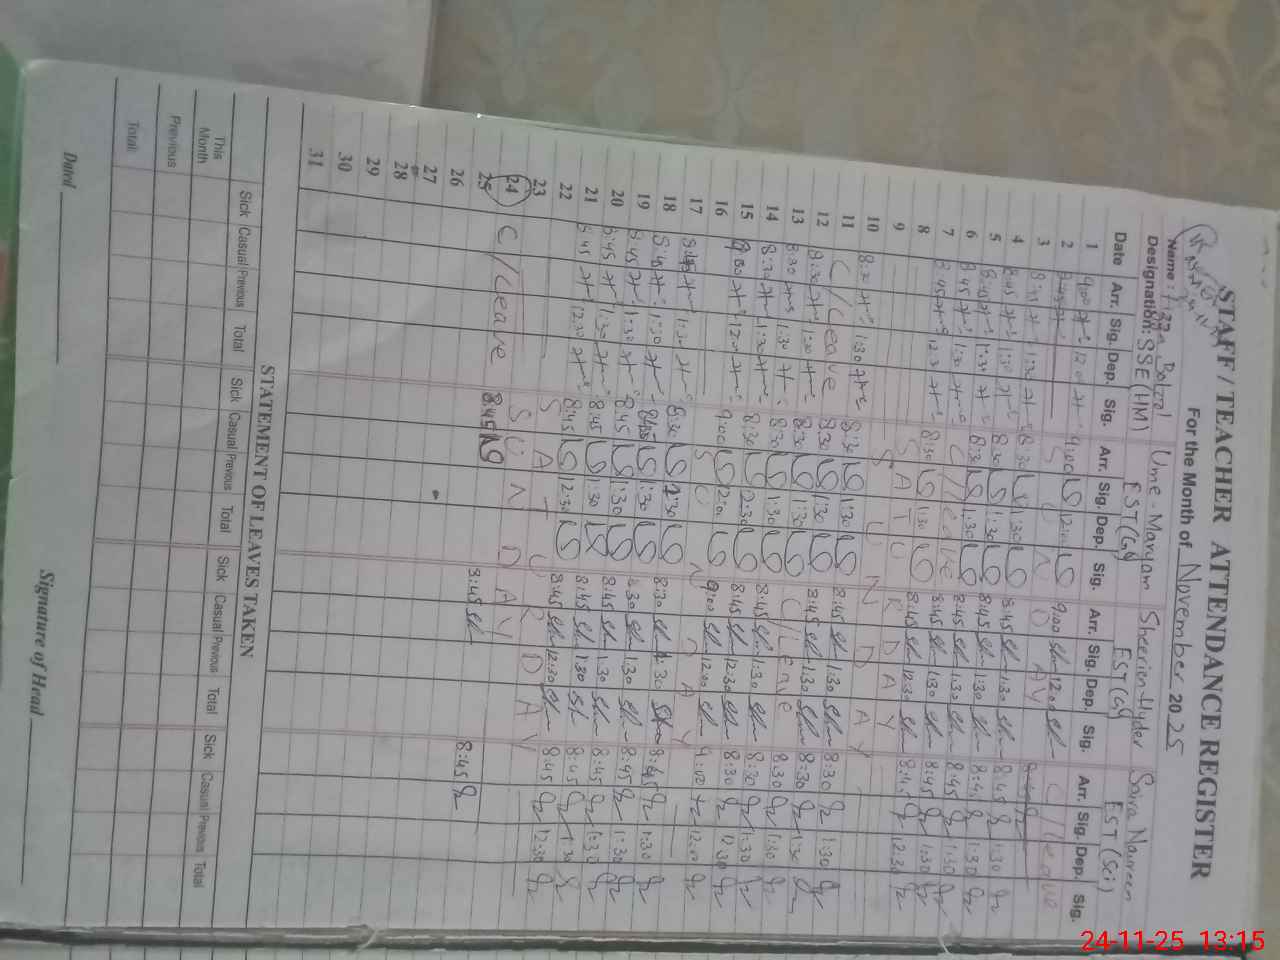 STAFF / TEACHER ATTENDANCE REGISTER
For the Month of November 2025
Name: Batool Ume-Maryam Sheerien Hyder Saira Naureen
Designation: SSE(HM) EST(G) EST(G) EST(Sci)
Date Arr. Sig. Dep. Sig. Arr. Sig. Dep. Sig. Arr. Sig. Dep. Sig. Arr. Sig. Dep. Sig.
1 9:00 12:00 9:00 12:00 9:00 12:00 C/Leave
2 S U N D A Y
3 8:30 1:30 8:45 1:30 8:45 1:30
4 8:45 1:30 8:30 1:30 8:45 1:30 8:45 1:30
5 8:45 1:30 8:30 1:30 8:45 1:30 8:45 1:30
6 8:45 1:30 C/Leave 8:45 1:30 8:45 1:30
7 8:45 12:30 8:30 1:30 8:45 12:30 8:45 12:30
8 S A T U R D A Y
9 S U N D A Y
10 8:30 1:30 8:30 1:30 8:45 1:30 8:30 1:30
11 C/Leave 8:30 1:30 8:45 1:30 8:30 1:30
12 8:30 1:30 8:30 1:30 C/Leave 8:30 1:30
13 8:30 1:30 8:30 1:30 8:45 1:30 8:30 1:30
14 8:30 1:30 8:30 12:30 8:45 12:30 8:30 12:30
15 9:00 12:00 9:00 12:00 9:00 12:00 9:00 12:00
16 S U N D A Y
17 1:30 8:30 1:30 8:30 1:30 8:45 1:30
18 8:45 1:30 8:45 1:30 8:30 1:30 8:45 1:30
19 8:45 1:30 8:45 1:30 8:45 1:30 8:45 1:30
20 8:45 1:30 8:45 1:30 8:45 1:30 8:45 1:30
21 8:45 12:30 8:45 12:30 8:45 12:30 8:45 12:30
22 S A T U R D A Y
23 S U N D A Y
24 C/Leave 8:45 8:45 8:45
25
26
27
28
29
30
31
STATEMENT OF LEAVES TAKEN
Sick Casual Previous Total Sick Casual Previous Total Sick Casual Previous Total Sick Casual Previous Total
This Month
Previous
Total:
Dated
Signature of Head
24-11-25 13:15